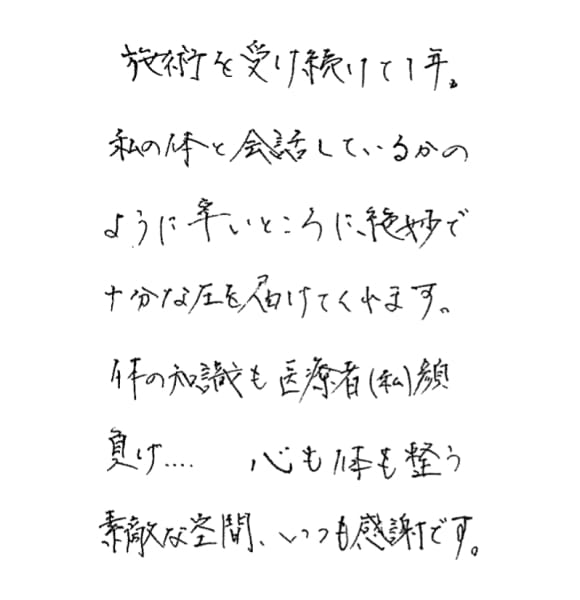 施術を受け続けて1年。
私の体と会話しているかの
ように辛いところに、絶妙で
十分な圧を届けてくれます。
体の知識も医療者(私)顔
負け....　心も体も整う
素敵な空間、いつも感謝です。